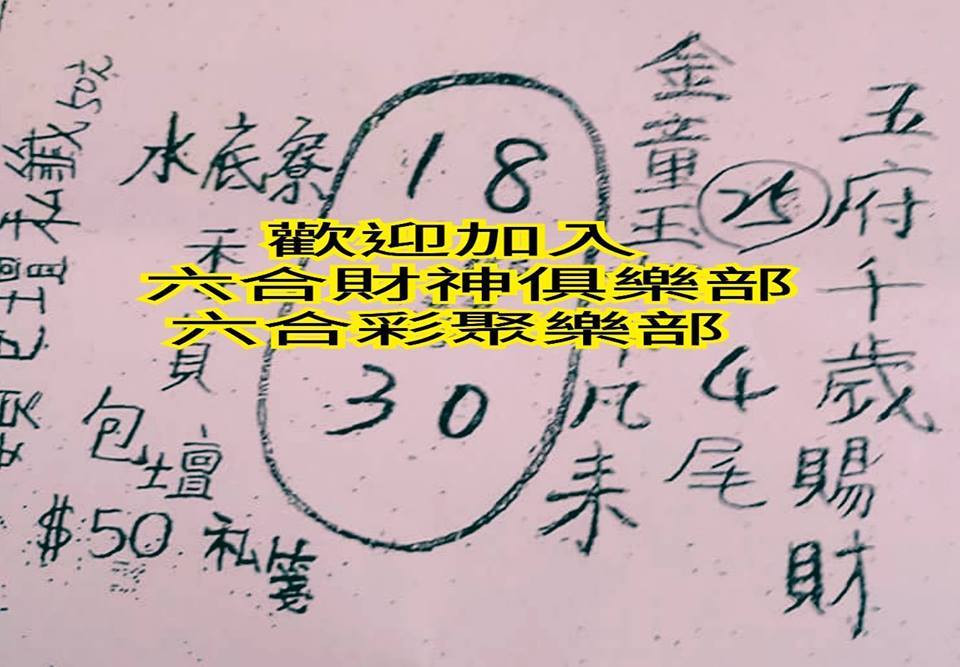 五府千歲賜財
25
4尾
金童玉
凡来
18
30
歡迎加入
六合財神俱樂部
六合彩聚樂部
水底寮
包壇
$50 私箋
私籤50元